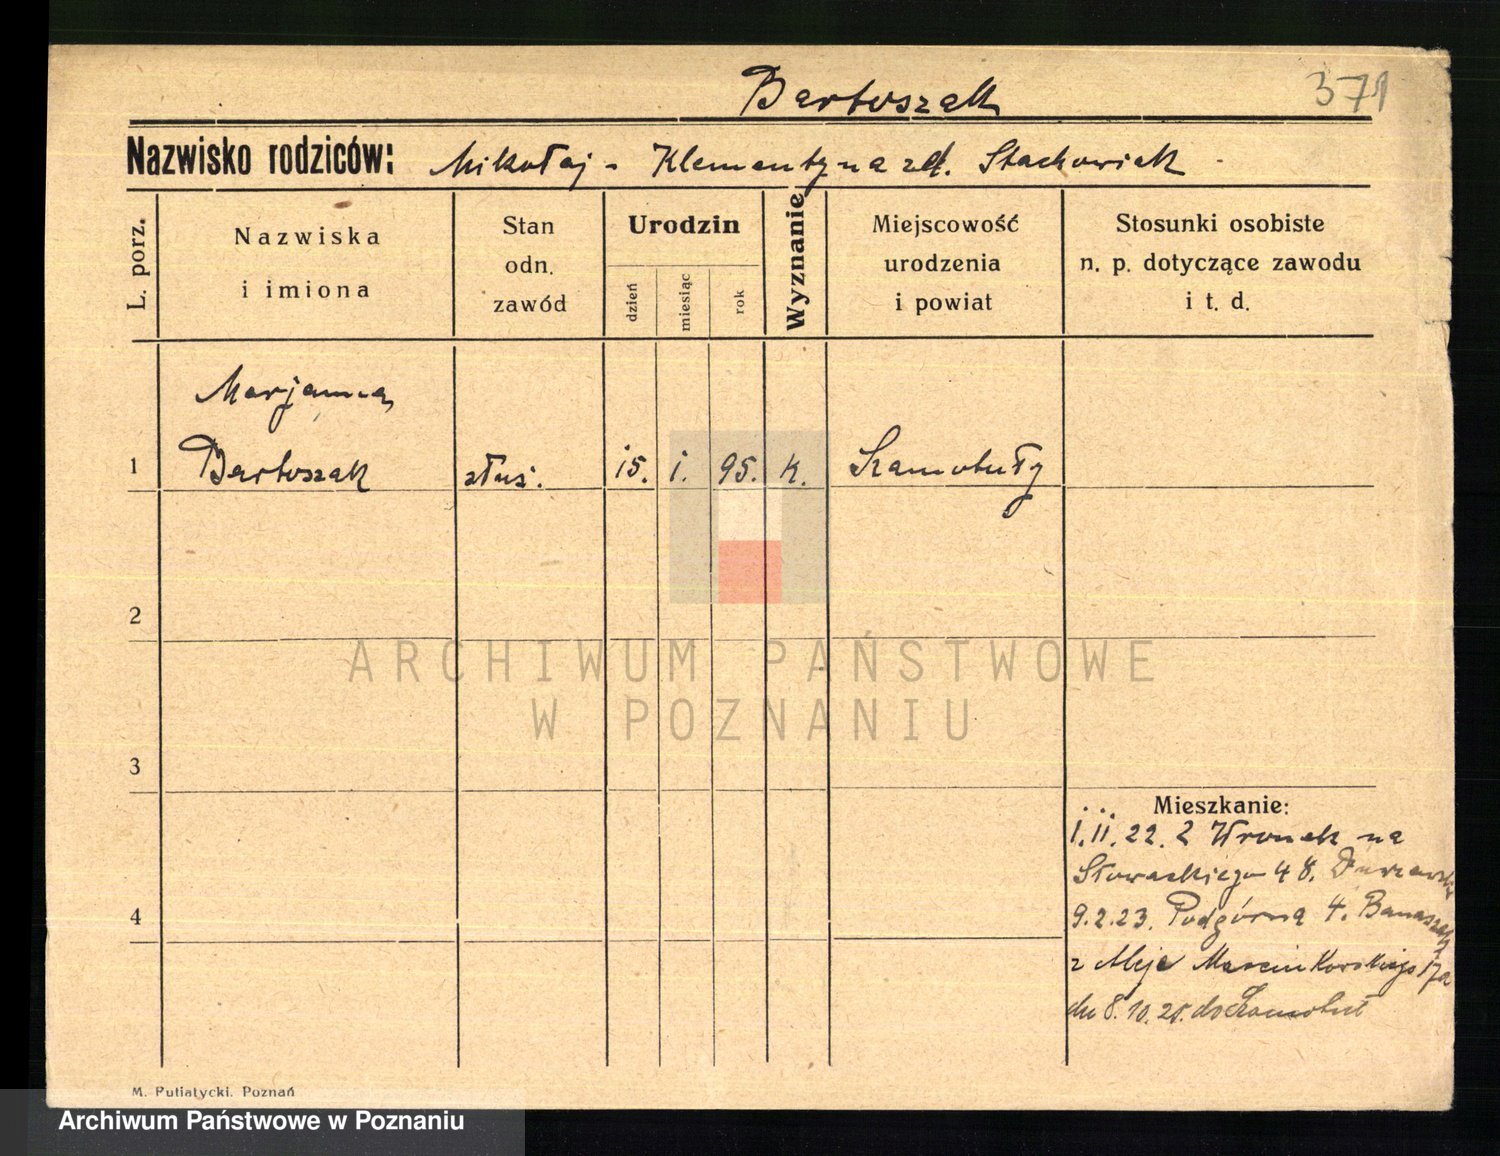 Bartoszak
371
Nazwisko rodziców: Mikołaj - Klementyna zd. Stachowiak
L. porz.
Nazwiska
i imiona
Stan
odn.
zawód
Urodzin
dzień
miesiąc
rok
Wyznanie
Miejscowość
urodzenia
i powiat
Stosunki osobiste
n. p. dotyczące zawodu
i t. d.
Marjanna
1 Bartoszak służ. 15. 1. 95. k. Szamotuły
2
ARCHIWUM PAŃSTWOWE
W POZNANIU
3
Mieszkanie:
1.11.22. z Wronek na
Słowackiego 48.
4
9.2.23. Podgórna 4.
z Aleje Marcinkowskiego 17a
do Szamotuł
M. Putiatycki. Poznań
Archiwum Państwowe w Poznaniu